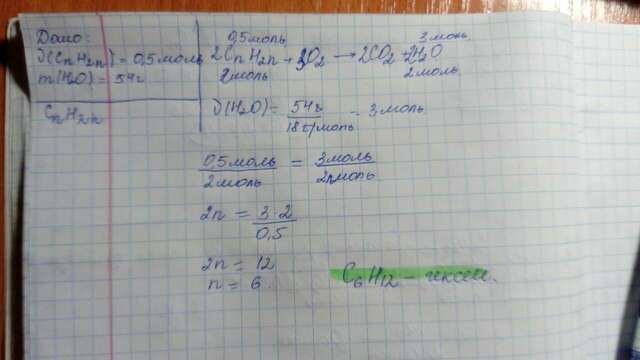 Дано:
ν(CnH2n) = 0,5 моль
m(H2O) = 54г
CnH2n
0,5 моль 3 моль
2CnH2n + 3O2 → 2CO2 + 2H2O
2 моль 2 моль
ν(H2O) = 54г / 18 г/моль = 3 моль
0,5 моль / 2 моль = 3 моль / 2n моль
2n = 3·2 / 0,5
2n = 12
n = 6
C6H12 – гексен.